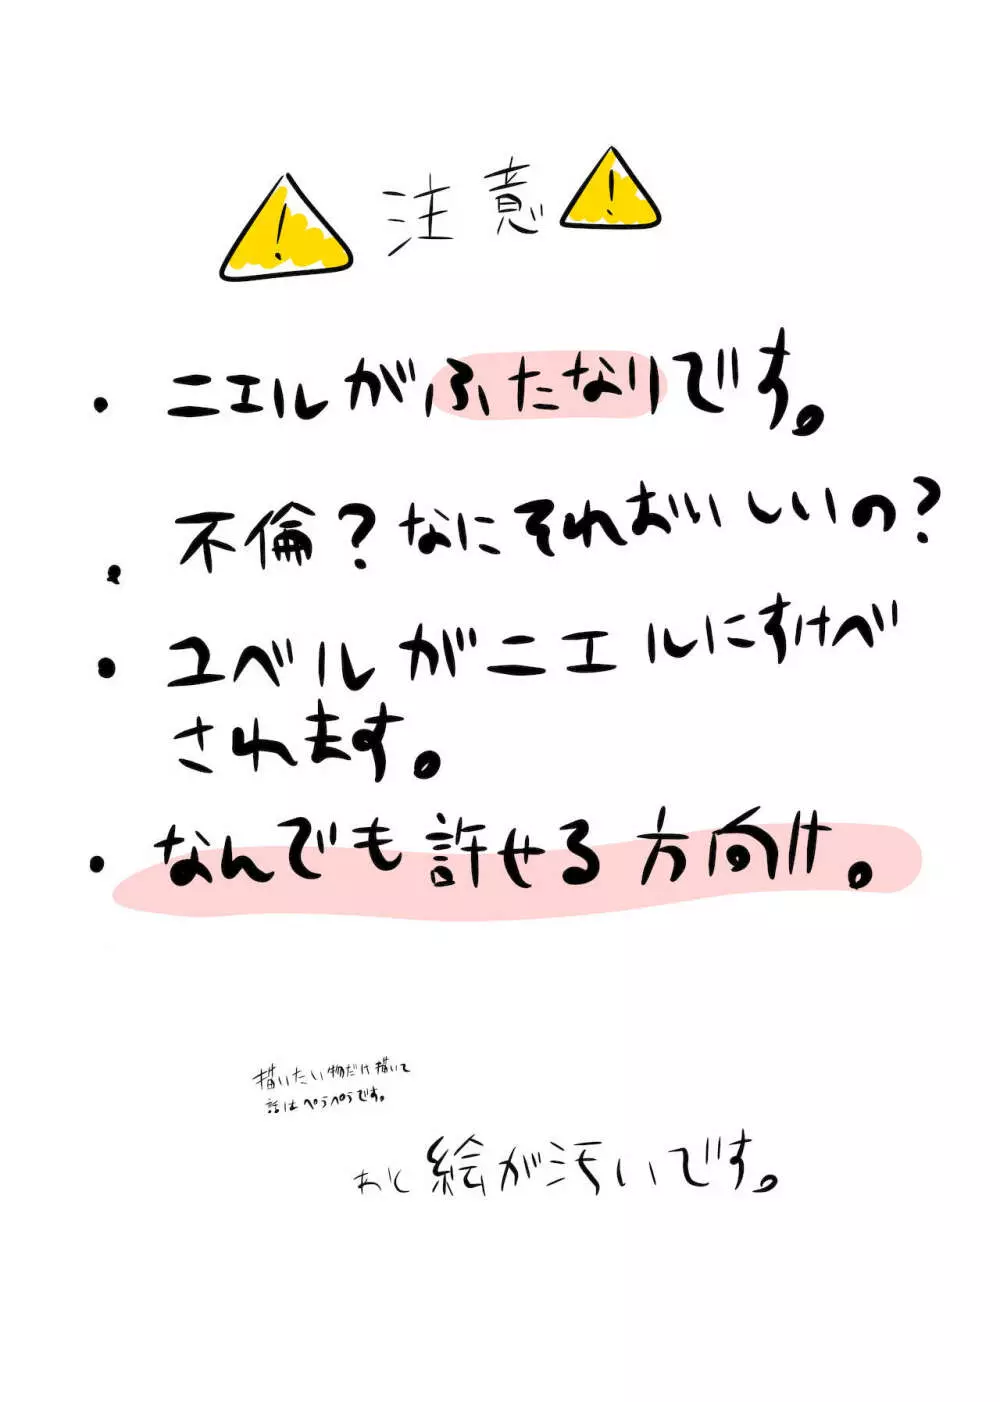 注意
・ニエルがふたなりです。
・不倫?なにそれおいしいの?
・ユベルがニエルにすけべ
されます。
・なんでも許せる方向け。
描いたい物だけ描いて
話はペラペラです。
あと絵が汚いです。